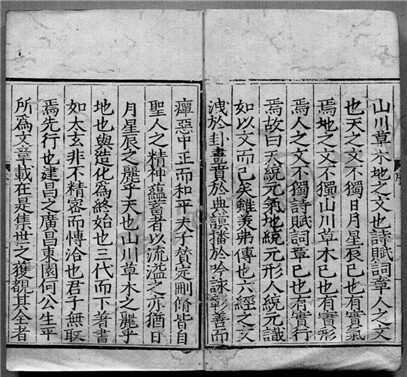 山川草木地之文也詩賦詞章人之文
也天之文不獨日月星辰已也有實氣
焉地之文不獨山川草木已也有實形
焉人之文不獨詩賦詞章已也有實行
焉故曰天統元氣地統元形人統元識
如以文而已矣雖美弗傳也六經之文
洩於卦畫賁於典謨播於吟詠彰善而
癉惡中正而和平夫子贊定刪脩皆自
聖人之精神蘊蓄者以流溢之亦猶日
月星辰之麗乎天也山川草木之麗乎
地也與造化為終始也三代而下著書
如太玄非不精密而愽洽也君子無取
焉先行也建昌之廣昌東園何公生平
所為文章載在是集世之獲覩其全者